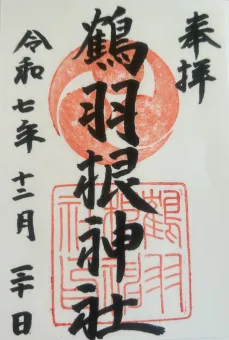 奉拝
鶴羽根神社
令和七年 十二月 二十日
鶴羽
社印